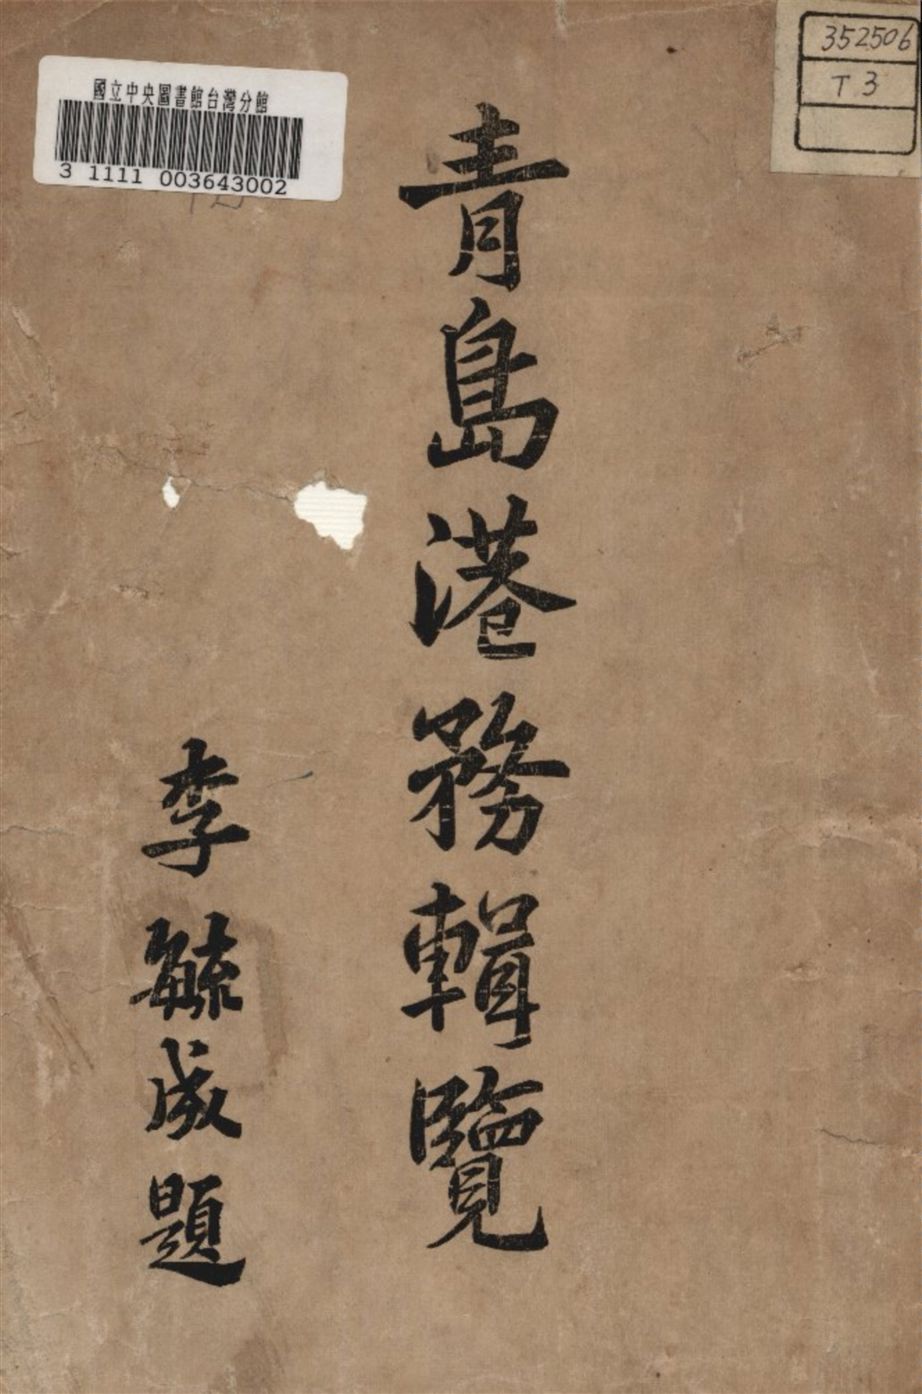 國立中央圖書館台灣分館
3 1111 003643002
352506
T 3
青島港務輯覽
李毓成題